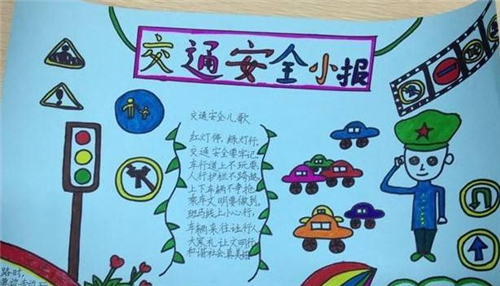 交通安全小报
交通安全儿歌
红灯停,绿灯行,
交通安全要牢记。
车行道上不玩耍,
人行护栏不跨越
上下车辆不争抢
乘车文明要做到,
斑马线上小心行,
车辆来往让行人
大家礼让文明行
和谐社会真美好
路时,